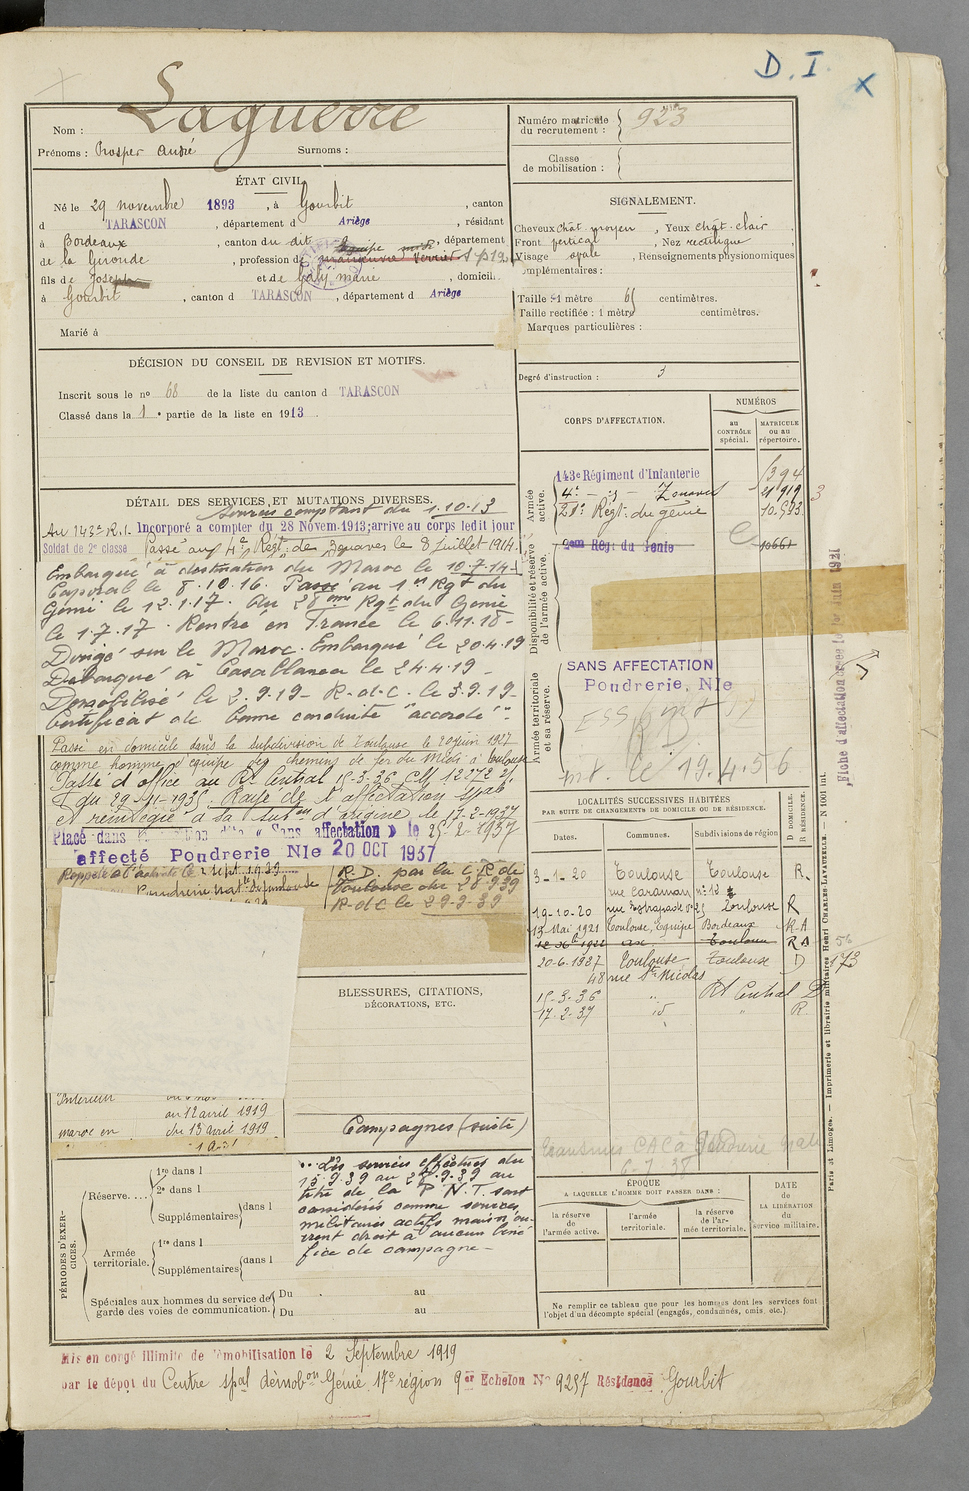 D. I.
Nom : Laguerre
Prénoms : Prosper André Surnoms :
Numéro matricule du recrutement : 923
Classe de mobilisation :
ÉTAT CIVIL
Né le 29 novembre 1893, à Gourbit, canton
d TARASCON, département d Ariège, résidant
à Bordeaux, canton du dit, département
de la Gironde, profession de
fils de Joseph et de Galy marie, domicil.
à Gourbit, canton d TARASCON, département d Ariège
Marié à
SIGNALEMENT.
Cheveux chât moyen, Yeux chât-clair
Front vertical, Nez rectiligne
Visage ovale, Renseignements physionomiques
complémentaires :
Taille : 1 mètre 65 centimètres.
Taille rectifiée : 1 mètre centimètres.
Marques particulières :
Degré d'instruction : 3
DÉCISION DU CONSEIL DE REVISION ET MOTIFS.
Inscrit sous le no 68 de la liste du canton d TARASCON
Classé dans la 1e partie de la liste en 1913
DÉTAIL DES SERVICES ET MUTATIONS DIVERSES.
Services comptant du 1.10.13
Au 143e R.I. Incorporé à compter du 28 Novem. 1913; arrivé au corps ledit jour
Soldat de 2e classe Passé au 4e Régt de Zouaves le 8 juillet 1914.
Embarqué à destination du Maroc le 10-7-14-
Caporal le 8.10.16. Passé au 1er Rgt du
Génie le 12.1.17. Au 28ème Rgt du Génie
le 1.7.17. Rentré en France le 6.11.18-
Dirigé sur le Maroc. Embarqué le 20.4.19
Débarqué à Casablanca le 24.4.19-
Démobilisé le 2.9.19- R-d-C. le 3.9.19-
Certificat de bonne conduite "accordé".
Passé en domicile dans la subdivision de Toulouse le 20 juin 1927
comme homme d'équipe des chemins de fer du Midi à Toulouse
Passé d'office au Rt Central 15-3-36 CM 12072
du 29-11-1935. Rayé de l'affectation spale
et réintégré à sa subon d'origine le 17-2-1937
Placé dans « Sans affectation » le 25-2-1937
affecté Poudrerie Nle 20 OCT 1937
Rappelé à l'activité le 2 sept 1939
Poudrerie natle de Toulouse
R.D. par la C.R de
Toulouse du 28-9-39
R-d-C le 29-9-39
BLESSURES, CITATIONS,
DÉCORATIONS, ETC.
Intérieur
au 12 avril 1919
Maroc en du 13 avril 1919
Campagnes (suite)
Les services effectués du
au 28.9.39 au
titre de la P.N.T. sont
considérés comme services
militaires actifs mais n'ou-
vrent droit à aucun béné
fice de campagne-
PÉRIODES D'EXERCICES.
Réserve....
1re dans l
2e dans l
Supplémentaires dans l
Armée territoriale.
1re dans l
Supplémentaires dans l
Spéciales aux hommes du service de garde des voies de communication.
Du au
Du au
CORPS D'AFFECTATION.
NUMÉROS
au CONTRÔLE spécial.
MATRICULE ou au répertoire.
Armée active.
143e Régiment d'Infanterie 1394
4e - Zouaves 21919
28e Régt du génie 10.593
Disponibilité et réserve de l'armée active.
2em Rég. du Génie 10661
Armée territoriale et sa réserve.
SANS AFFECTATION
Poudrerie, Nle
le 19.4.56
Fiche d'affectation créée le 1er juin 1921
LOCALITÉS SUCCESSIVES HABITÉES
PAR SUITE DE CHANGEMENTS DE DOMICILE OU DE RÉSIDENCE.
Dates. Communes. Subdivisions de région D DOMICILE. R RÉSIDENCE.
3-1-20 Toulouse Toulouse R.
rue Caraman no 12
19-10-20 rue Estrapade no 25 Toulouse R
13 Mai 1921 Toulouse, Equipe Bordeaux R A
20-6-1927 Toulouse Toulouse D
48 rue Ste Nicolas
15-3-36 " Rt Central D
17-2-37 id " R.
173
ÉPOQUE
A LAQUELLE L'HOMME DOIT PASSER DANS :
la réserve de l'armée active.
l'armée territoriale.
la réserve de l'armée territoriale.
DATE de LA LIBÉRATION du service militaire.
Ne remplir ce tableau que pour les hommes dont les services font
l'objet d'un décompte spécial (engagés, condamnés, omis, etc.).
Paris et Limoges. — Imprimerie et librairie militaires Henri CHARLES-LAVAUZELLE. — N 1001 int.
Mis en congé illimité de démobilisation le 2 Septembre 1919
par le dépôt du Centre spal démobon Génie 17e région 9er Echelon No 9257 Résidence Gourbit